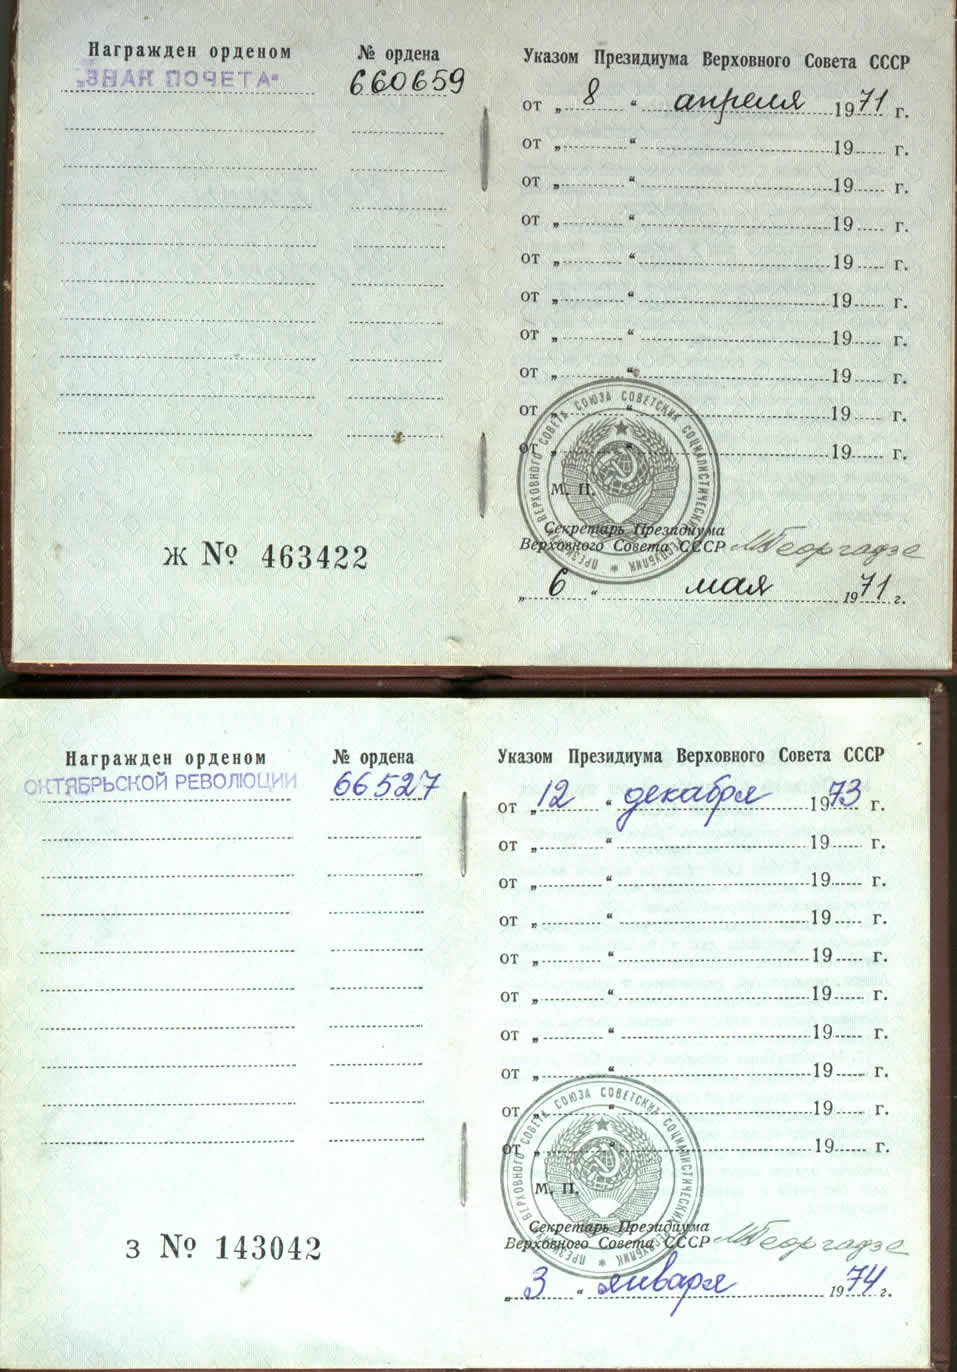 Награжден орденом № ордена
„ЗНАК ПОЧЕТА" 660659
Ж № 463422
Указом Президиума Верховного Совета СССР
от „ 8 “ апреля 1971 г.
от „ “ 19 г.
от „ “ 19 г.
от „ “ 19 г.
от „ “ 19 г.
от „ “ 19 г.
от „ “ 19 г.
от „ “ 19 г.
от „ “ 19 г.
от „ “ 19 г.
ПРЕЗИДИУМ ВЕРХОВНОГО СОВЕТА СОЮЗА СОВЕТСКИХ СОЦИАЛИСТИЧЕСКИХ РЕСПУБЛИК
М. П.
Секретарь Президиума
Верховного Совета СССР МГеоргадзе
„ 6 “ мая 1971 г.
Награжден орденом № ордена
ОКТЯБРЬСКОЙ РЕВОЛЮЦИИ 66527
З № 143042
Указом Президиума Верховного Совета СССР
от „ 12 “ декабря 1973 г.
от „ “ 19 г.
от „ “ 19 г.
от „ “ 19 г.
от „ “ 19 г.
от „ “ 19 г.
от „ “ 19 г.
от „ “ 19 г.
от „ “ 19 г.
от „ “ 19 г.
ПРЕЗИДИУМ ВЕРХОВНОГО СОВЕТА СОЮЗА СОВЕТСКИХ СОЦИАЛИСТИЧЕСКИХ РЕСПУБЛИК
М. П.
Секретарь Президиума
Верховного Совета СССР МГеоргадзе
„ 3 “ января 1974 г.